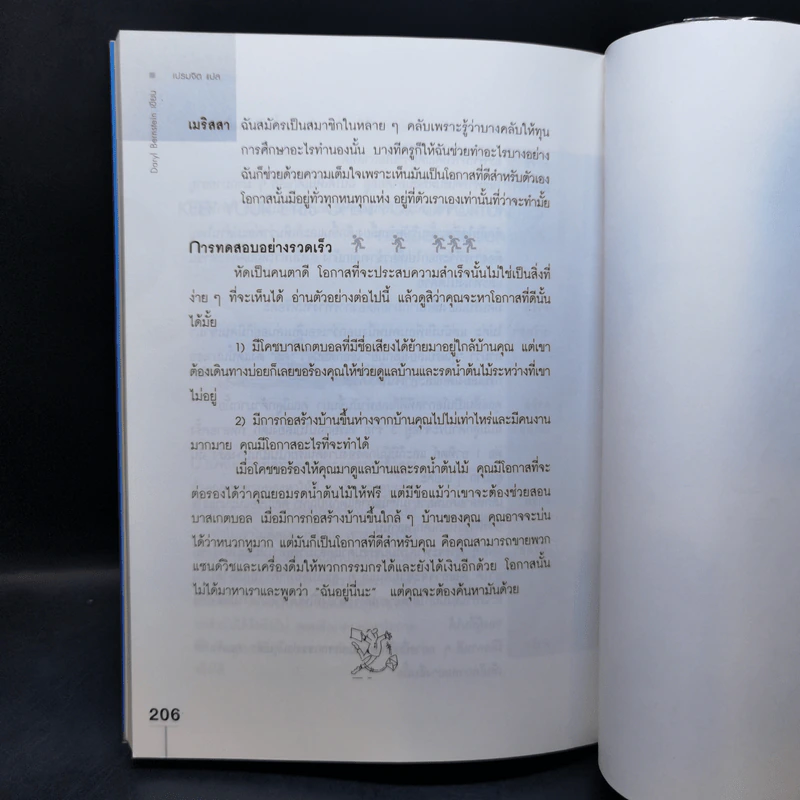 Daryl Bernstein เขียน ■ เปรมจิต แปล
เมริสสา ฉันสมัครเป็นสมาชิกในหลาย ๆ คลับเพราะรู้ว่าบางคลับให้ทุน
การศึกษาอะไรทำนองนั้น บางทีครูก็ให้ฉันช่วยทำอะไรบางอย่าง
ฉันก็ช่วยด้วยความเต็มใจเพราะเห็นมันเป็นโอกาสที่ดีสำหรับตัวเอง
โอกาสนั้นมีอยู่ทั่วทุกหนทุกแห่ง อยู่ที่ตัวเราเองเท่านั้นที่ว่าจะทำมั้ย
การทดสอบอย่างรวดเร็ว
หัดเป็นคนตาดี โอกาสที่จะประสบความสำเร็จนั้นไม่ใช่เป็นสิ่งที่
ง่าย ๆ ที่จะเห็นได้ อ่านตัวอย่างต่อไปนี้ แล้วดูสิว่าคุณจะหาโอกาสที่ดีนั้น
ได้มั้ย
1) มีโคชบาสเกตบอลที่มีชื่อเสียงได้ย้ายมาอยู่ใกล้บ้านคุณ แต่เขา
ต้องเดินทางบ่อยก็เลยขอร้องคุณให้ช่วยดูแลบ้านและรดน้ำต้นไม้ระหว่างที่เขา
ไม่อยู่
2) มีการก่อสร้างบ้านขึ้นห่างจากบ้านคุณไปไม่เท่าไหร่และมีคนงาน
มากมาย คุณมีโอกาสอะไรที่จะทำได้
เมื่อโคชขอร้องให้คุณมาดูแลบ้านและรดน้ำต้นไม้ คุณมีโอกาสที่จะ
ต่อรองได้ว่าคุณยอมรดน้ำต้นไม้ให้ฟรี แต่มีข้อแม้ว่าเขาจะต้องช่วยสอน
บาสเกตบอล เมื่อมีการก่อสร้างบ้านขึ้นใกล้ ๆ บ้านของคุณ คุณอาจจะบ่น
ได้ว่าหนวกหูมาก แต่มันก็เป็นโอกาสที่ดีสำหรับคุณ คือคุณสามารถขายพวก
แซนด์วิชและเครื่องดื่มให้พวกกรรมกรได้และยังได้เงินอีกด้วย โอกาสนั้น
ไม่ได้มาหาเราและพูดว่า "ฉันอยู่นี่นะ" แต่คุณจะต้องค้นหามันด้วย
206